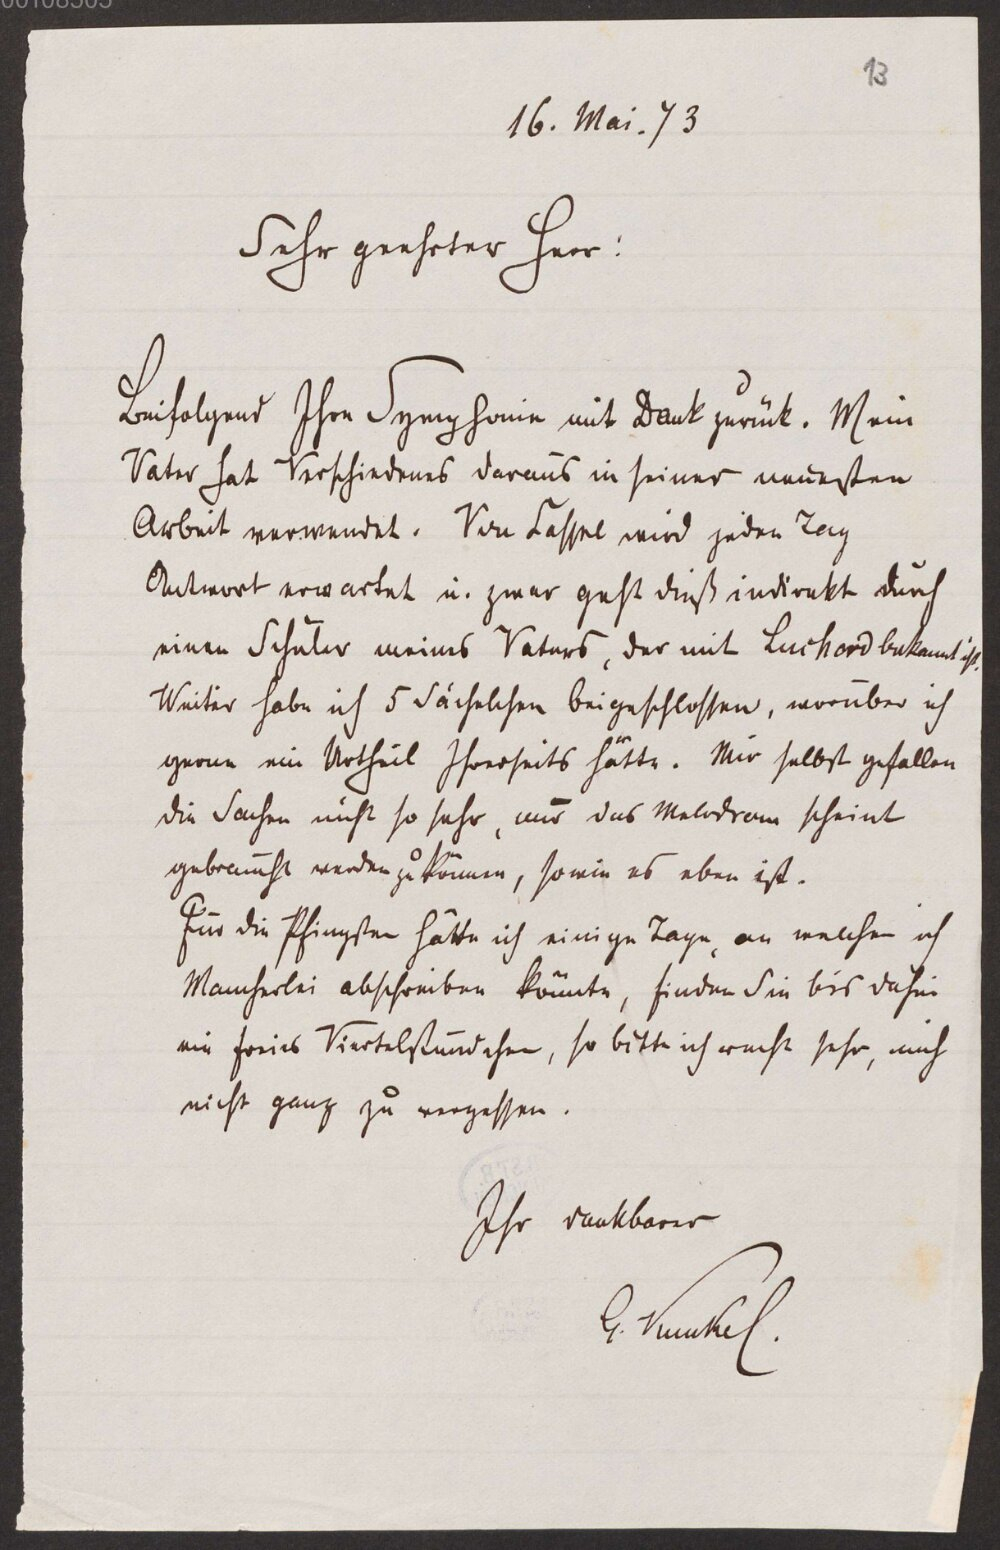 13
16. Mai. 73
Sehr geehrter Herr:
Beifolgend Ihre Symphonie mit Dank zurück. Mein
Vater hat Verschiedenes daraus in seiner neuesten
Arbeit verwendet. Von Cassel wird jeden Tag
Antwort erwartet u. zwar geht dieß indirekt durch
einen Schüler meines Vaters, der mit Luckhard bekannt ist.
Weiter habe ich 5 Sächelchen beigeschlossen, worüber ich
gerne ein Urtheil Ihrerseits hätte. Mir selbst gefallen
die Sachen nicht so sehr, nur das Melodram scheint
gebraucht werden zu können, sowie es eben ist.
Für die Pfingsten hätte ich einige Tage, an welchen ich
Mancherlei abschreiben könnte, finden Sie bis dahin
ein freies Viertelstündchen, so bitte ich recht sehr, mich
nicht ganz zu vergessen.
Ihr dankbarer
G. Kunkel.